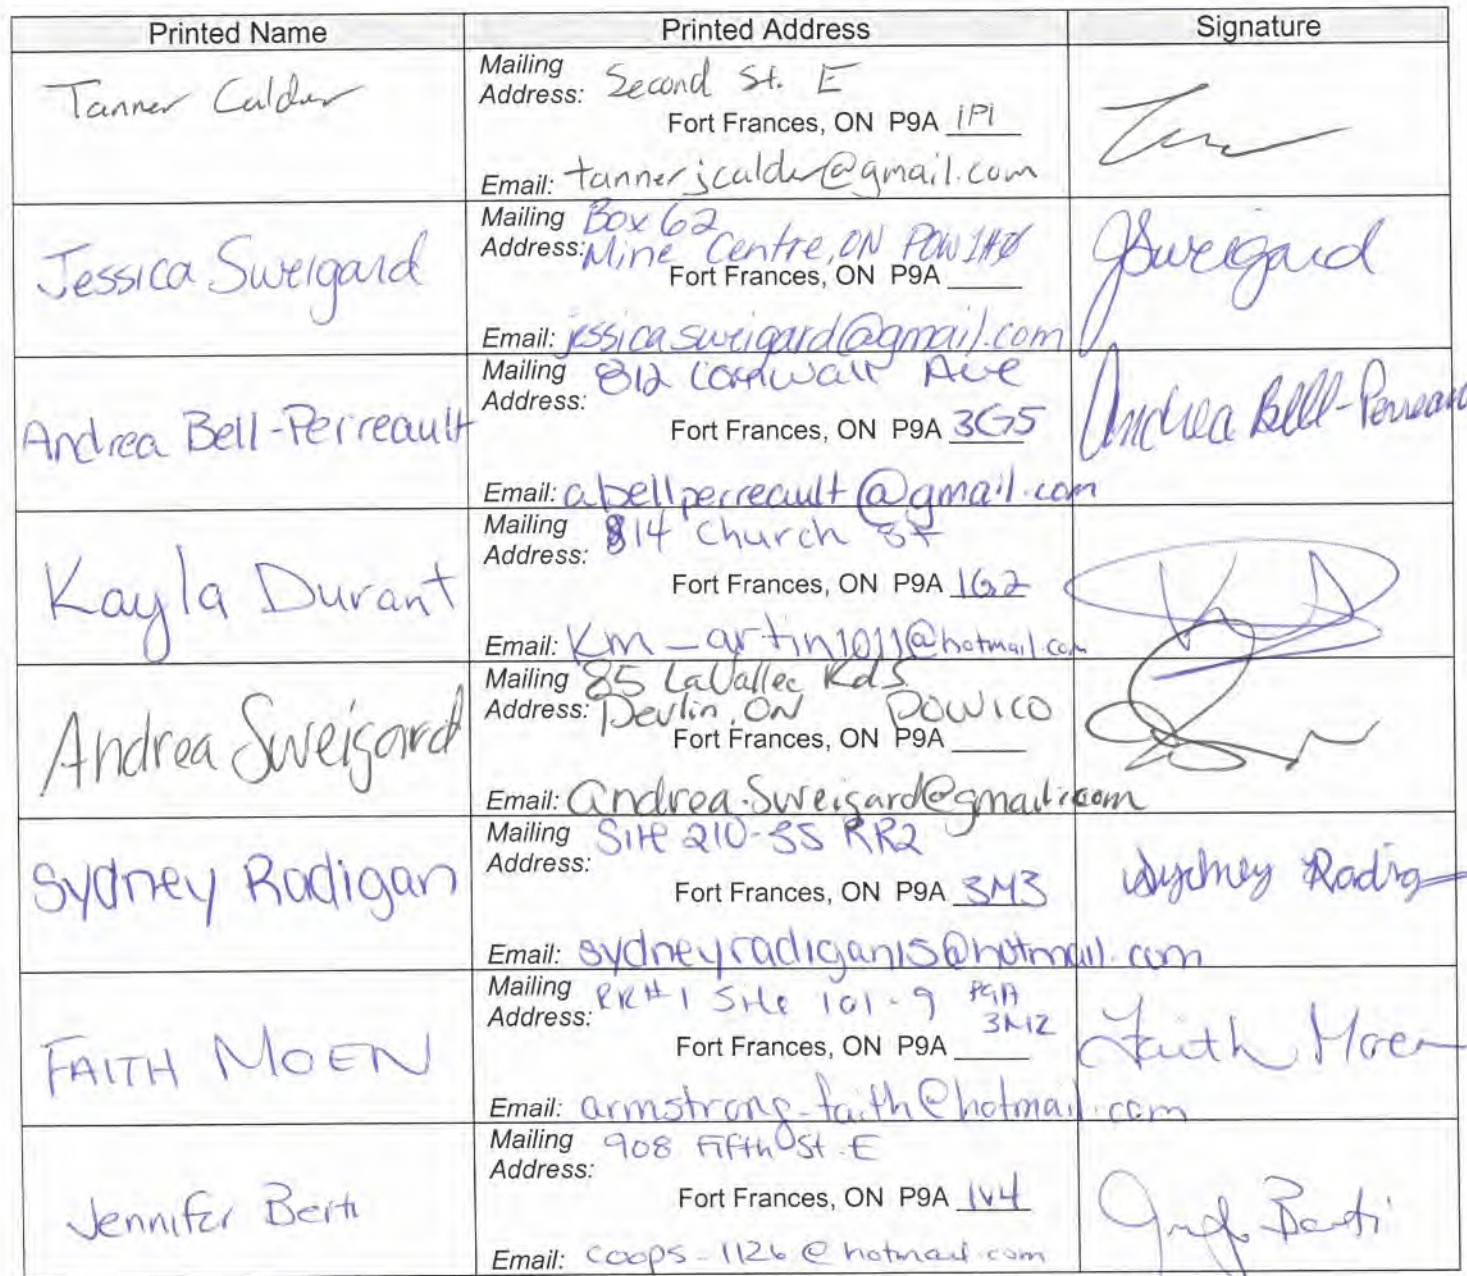 Printed Name Printed Address Signature
Tanner Calder
Mailing
Address: Second St. E
Fort Frances, ON P9A 1P1
Email: tannerjcalder@gmail.com
Jessica Sweigard
Mailing Box 62
Address: Mine Centre, ON P0W 1H0
Fort Frances, ON P9A
Email: jessicasweigard@gmail.com
JSweigard
Andrea Bell-Perreault
Mailing 812 Cornwall Ave
Address:
Fort Frances, ON P9A 3G5
Email: abellperreault@gmail.com
Andrea Bell-Perreault
Kayla Durant
Mailing 814 Church St
Address:
Fort Frances, ON P9A 1G2
Email: Km_artin1011@hotmail.com
Andrea Sweigard
Mailing 85 LaVallee Rd S
Address: Devlin, ON P0W1C0
Fort Frances, ON P9A
Email: andrea.sweigard@gmail.com
Sydney Radigan
Mailing Site 210-35 RR2
Address:
Fort Frances, ON P9A 3M3
Email: sydneyradigan15@hotmail.com
Sydney Radigan
FAITH MOEN
Mailing RR#1 Site 101-9 P9A
Address: 3M2
Fort Frances, ON P9A
Email: armstrong_faith@hotmail.com
Faith Moen
Jennifer Berti
Mailing 908 Fifth St. E
Address:
Fort Frances, ON P9A 1V4
Email: coops_1126@hotmail.com